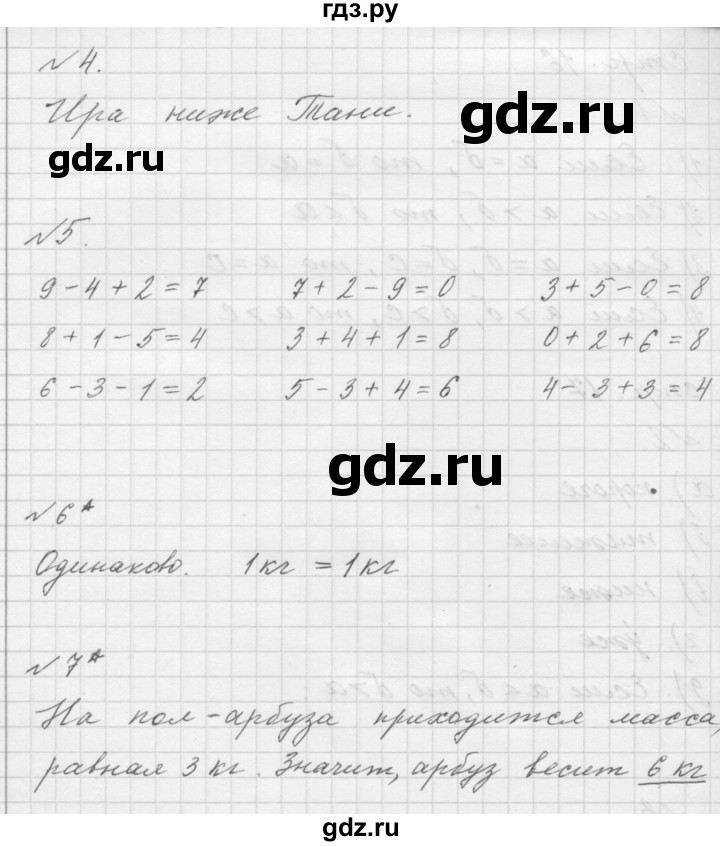 гдз.ру
№ 4.
Ира ниже Тани.
gdz.ru
gdz.ru
№5.
9 - 4 + 2 = 7 7 + 2 - 9 = 0 3 + 5 - 0 = 8
8 + 1 - 5 = 4 3 + 4 + 1 = 8 0 + 2 + 6 = 8
6 - 3 - 1 = 2 5 - 3 + 4 = 6 4 - 3 + 3 = 4
gdz.ru
№ 6*
Одинаково. 1 кг = 1 кг
№ 7*
На пол-арбуза приходится масса,
равная 3 кг. Значит, арбуз весит 6 кг
gdz.ru